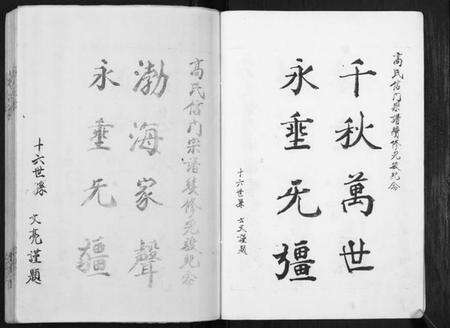 高氏信门宗譜賛修完竣纪念
千秋萬世
永垂无疆
十六世孫 士文謹題
高氏信门宗譜賛修完竣纪念
渤海家聲
永垂无疆
十六世孫 文亮谨題